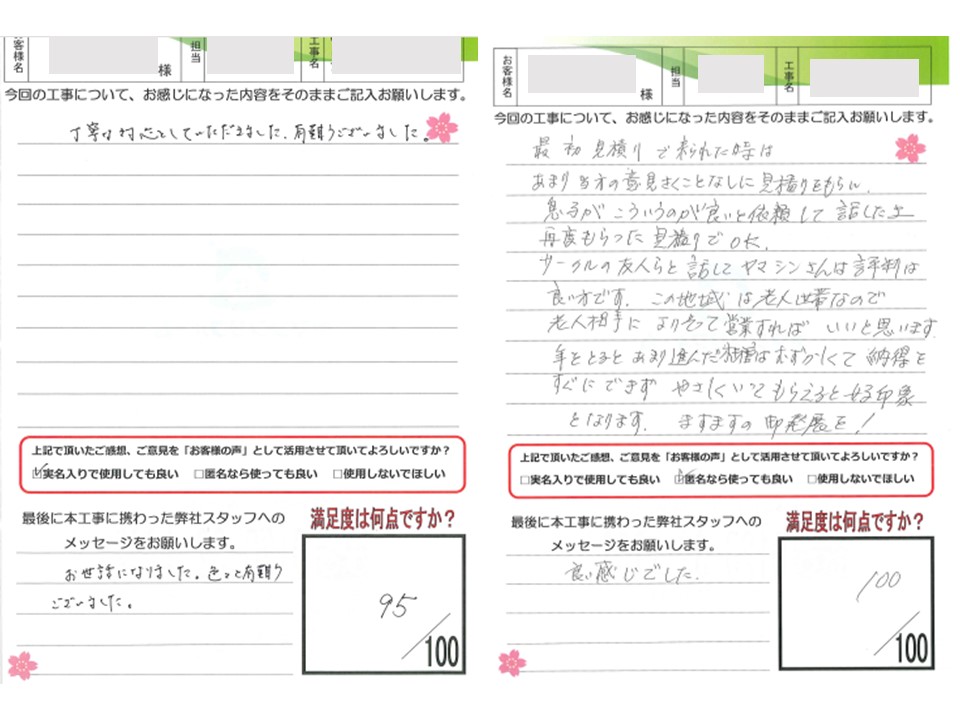 お客様名
様
担当
工事名
今回の工事について、お感じになった内容をそのままご記入お願いします。
丁寧な対応をしていただきました。有難うございました。
上記で頂いたご感想、ご意見を「お客様の声」として活用させて頂いてよろしいですか？
☑実名入りで使用しても良い □匿名なら使っても良い □使用しないでほしい
最後に本工事に携わった弊社スタッフへの
メッセージをお願いします。
お世話になりました。色々と有難う
ございました。
満足度は何点ですか？
95
/100
お客様名
様
担当
工事名
今回の工事について、お感じになった内容をそのままご記入お願いします。
最初見積りで来られた時は
あまり当方の意見きくことなしに見積りをもらい、
息子がこういうのが良いと依頼して話した上
再度もらった見積りでOK.
サークルの友人らと話してヤマシンさんは評判は
良い方です. この地域は老人世帯なので
老人相手によりそって営業すれば いいと思います
年をとるとあまり進んだ はむずかしくて納得を
すぐにできず やさしくいってもらえると 印象
となります. ますますの御発展を！
上記で頂いたご感想、ご意見を「お客様の声」として活用させて頂いてよろしいですか？
□実名入りで使用しても良い ☑匿名なら使っても良い □使用しないでほしい
最後に本工事に携わった弊社スタッフへの
メッセージをお願いします。
良い感じでした.
満足度は何点ですか？
100
/100